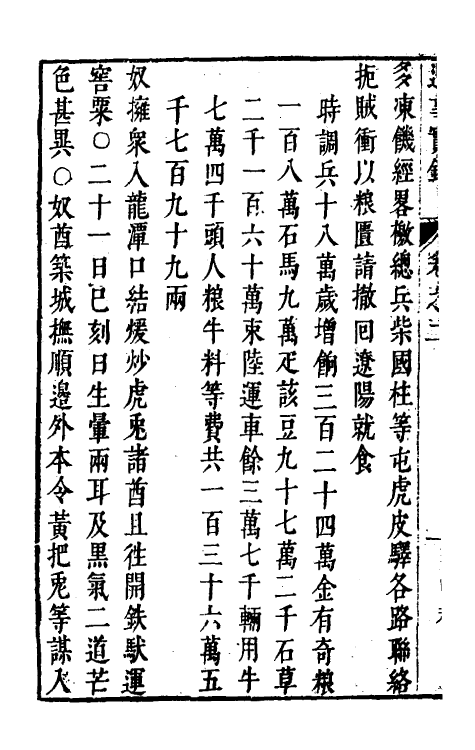 多凍饑經畧檄總兵柴國柱等屯虎皮驛各路聯絡
扼賊衝以粮匱請撤回遼陽就食
時調兵十八萬歲增餉三百二十四萬金有奇粮
一百八萬石馬九萬疋該豆九十七萬二千石草
二千一百六十萬束陸運車餘三萬七千輛用牛
七萬四千頭人粮牛料等費共一百三十六萬五
千七百九十九兩
奴擁衆入龍潭口結煖炒虎兎諸酋且徃開鉄馱運
窖粟○二十一日巳刻日生暈兩耳及黑氣二道芒
色甚異○奴酋築城撫順邉外本令黃把兎等謀入